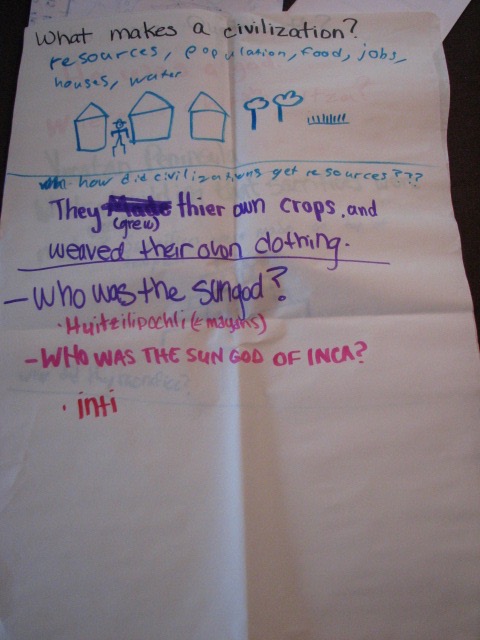 What makes a civilization?
resources, population, food, jobs,
houses, water
how did civilizations get resources???
They (grew) thier own crops, and
weaved their own clothing.
- Who was the sungod?
• Huitzilipochli
- WHO WAS THE SUN GOD OF INCA?
• inti